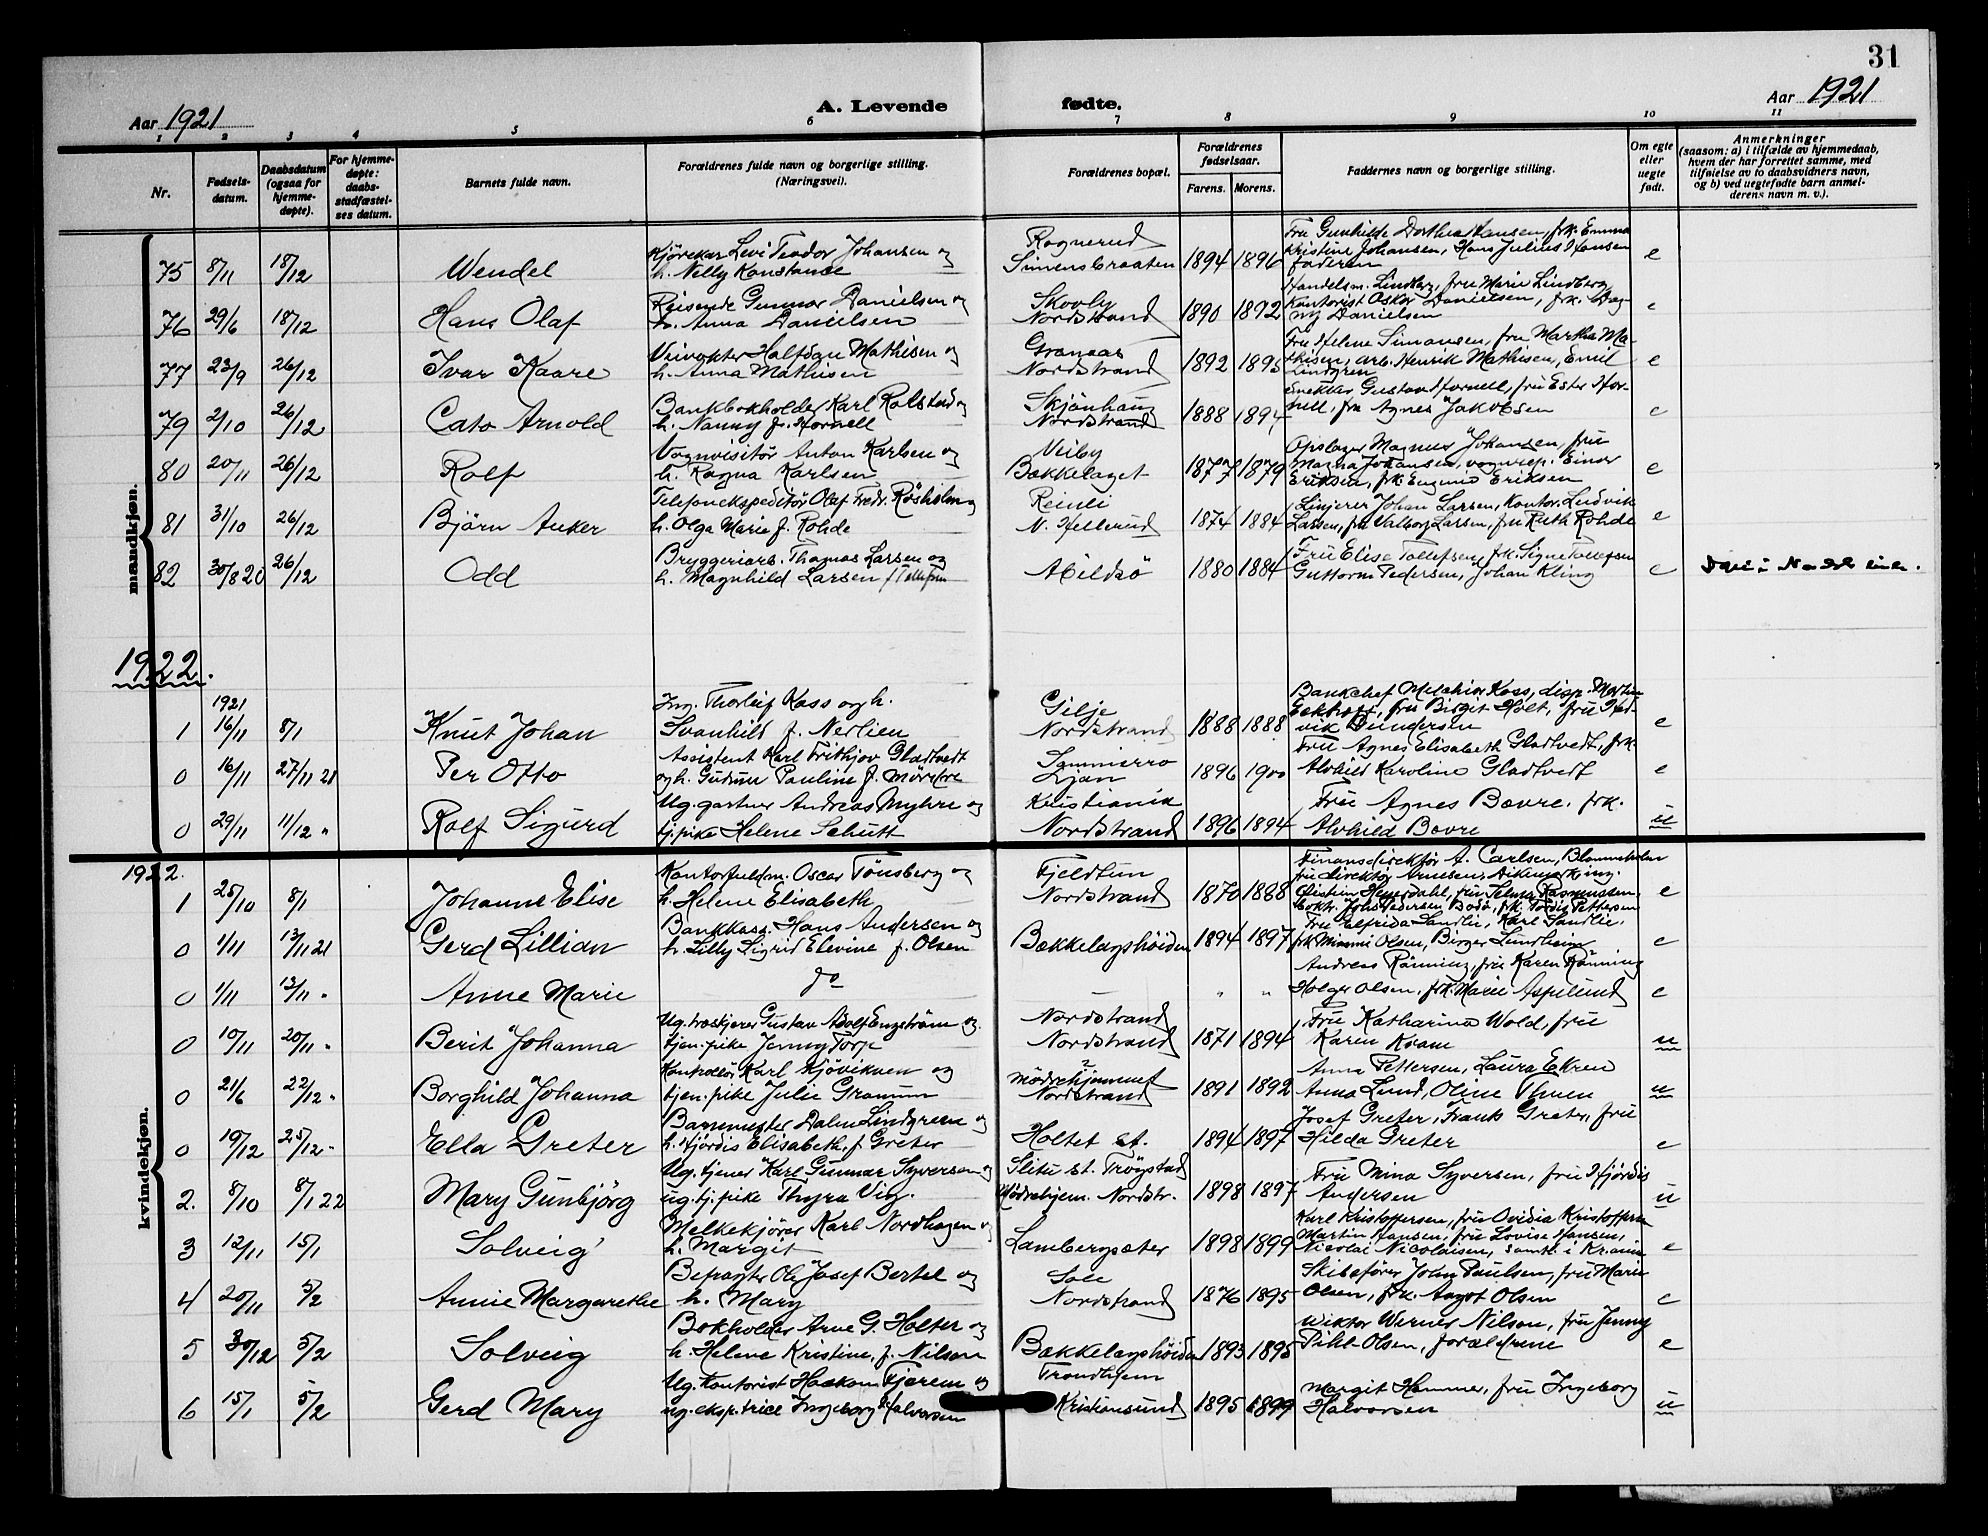 31
Aar 1921
A. Levende fødte.
Aar 1921
1 2 3 4 5 6 7 8 9 10 11
Nr.
Fødsels-
datum.
Daabsdatum
(ogsaa for
hjemme-
døpte).
For hjemme-
døpte:
daabs-
stadfæstel-
ses datum.
Barnets fulde navn.
Forældrenes fulde navn og borgerlige stilling.
(Næringsvei).
Forældrenes bopæl.
Forældrenes
fødselsaar.
Farens. Morens.
Faddernes navn og borgerlige stilling.
Om egte
eller
uegte
født.
Anmerkninger
(saasom: a) i tilfælde av hjemmedaab,
hvem der har forrettet samme, med
tilføielse av to daabsvidners navn,
og b) ved uegtefødte barn anmel-
derens navn m. v.).
mandkjøn.
75 8/11 18/12 Wendel
Kjørekar Levi Teodor Johansen og
h. Nelly Konstance
Rognerud
Simensbraaten 1894 1896
Fru Gunhilde Dorthea Hansen, frk. Emma
Kristine Johansen, Hans Julius Hansen
faderen e
76 29/6 18/12 Hans Olaf
Reisende Gunnar Danielsen og
h. Anna Danielsen
Skovly
Nordstrand 1890 1892
Handelsm. Lindberg, fru Marie Lindberg
Kontorist Oskar Danielsen, frk. Dag-
ny Danielsen e
77 23/9 26/12 Ivar Kaare
Veivokter Halfdan Mathisen og
h. Anna Mathisen
Granaas
Nordstrand 1892 1895
Fru Helene Simonsen, fru Martha Ma-
thisen, arb. Henrik Mathisen, Emil
Lindgren e
79 2/10 26/12 Cato Arnold
Bankbokholder Karl Rolstad og
h. Nanny f. Hornell
Skjönhaug
Nordstrand 1888 1894
Snekker Gustav Hornell, fru Ester Hor-
nell, fru Agnes Jakobsen e
80 20/11 26/12 Rolf
Vognvisitör Anton Karlsen og
h. Ragna Karlsen
Veiby
Bækkelaget 1877 1879
Opslager Magnus Johansen, fru
Magna Johansen, vognrep. Einar
Eriksen, frk. Eugenie Eriksen e
81 31/10 26/12 Björn Anker
Telefonekspeditör Olaf Fredr. Røsholm og
h. Olga Marie f. Rohde
Reinli
N. Hellerud 1874 1884
Linjerer Johan Larsen, Kontor. Ludvik
Larsen, frk. Valborg Larsen, fru Ruth Rohde e
82 30/8 20 26/12 Odd
Bryggeriarb. Thomas Larsen og
h. Magnhild Larsen f. Tollefsen
Abildsö 1880 1884
Fru Elise Tollefsen, frk. Signe Tollefsen
Guttorm Pedersen, Johan Kling e
1922.
1921
1 16/11 8/1 Knut Johan
Ing. Thorleif Kass og h.
Svanhild f. Nerlien
Gilje
Nordstrand 1888 1888
Bankchef Melchior Kass, disp. Martin
Eckhoff, fru Birgit Holt, fru Hed-
vik Gundersen e
0 16/11 27/11 21 Per Otto
Assistent Karl Frithjov Gladtvedt
og h. Gudrun Pauline f. Mördre
Sommerro
Ljan 1896 1900
Fru Agnes Elisabeth Gladtvedt, frk.
Alvhild Karoline Gladtvedt e
0 29/11 11/12 " Rolf Sigurd
Ug. gartner Andreas Myhre og
tj. pike Helene Schutt
Kristiania
Nordstrand 1896 1894
Fru Agnes Bovre, frk.
Alvhild Bovre u
kvindekjøn.
1922.
1 25/10 8/1 Johanne Elise
Kontorfuldm. Oscar Tönsberg og
h. Helene Elisabeth
Fjeldtun
Nordstrand 1870 1888
Finansdirektör A. Carlsen, Blommenholm
fru direktör Arnesen, Aikinge Ring.
e
0 1/11 13/11 21 Gerd Lillian
Bankkass. Hans Andersen og
h. Lilly Sigrid Elevine f. Olsen
Bækkelagshöiden 1894 1897
Fru Elfrida Sandlie, Karl Sandlie,
frk. Mimmi Olsen, Birger Lundheim e
0 1/11 13/11 " Anne Marie
do
" "
Andreas Rönning, fru Karen Rönning
Holger Olsen, frk. Marie Asplund e
0 10/11 20/11 " Berit Johanna
Ug. træskjærer Gustav Adolf Engström og
tjen. pike Jenny Torp
Nordstrand
Nordstrand 1871 1894
Fru Katharina Wold, fru
Karen Kvam u
0 21/6 22/12 " Borghild Johanna
Kontrollör Karl Kjövikven og
tjen. pike Julie Granum
?
Mödrehjemmet
Nordstrand 1891 1892
Anna Pettersen, Laura Ekren
Anna Lund, Oline Thuen u
0 19/12 25/12 " Ella Greter
h. Hjördis Elisabeth, f. Greter
Holtet st. 1894 1897
Josef Greter, Frank Greter, fru
Hilda Greter e
2. 8/10 8/1 22 Mary Gunbjörg
Ug. tjener Karl Gunnar Syversen og
ug. tj. pike Thyra Vig.
Slitu st. Trögstad
Mödrehjem. Nordstr. 1898 1897
Fru Mina Syversen, fru Hjördis
Andersen u
3 12/11 15/1 Solveig
Melkekjörer Karl Nordhagen og
h. Margit
Lambergsæter 1898 1899
Karl Kristoffersen, fru Ovidia Kristoffersen
Martin Hansen, fru Lovise Hansen,
Nicolai Nicolaisen, samtl. i Kr.ania e
4 20/11 5/2 Annie Margarethe
Befragter Ole Josef Bertel og
h. Mary
Sole
Nordstrand 1876 1895
Skibsförer John Paulsen, fru Marie
Olsen, frk. Aagot Olsen e
5 30/12 5/2 Solveig
Bokholder Arne G. Holter og
h. Helene Kristine, f. Nilsen
Bækkelagshöiden 1893 1895
Wiktor Werner Nilsen, fru Jenny
Pihl-Olsen, forældrene e
6 15/1 5/2 Gerd Mary
Ug. Kontorist Haakon Fjærem og
ug. eksp.trice Ingeborg Halvorsen
Trondhjem
Kristiansund 1895 1899
Margit Hammer, fru Ingeborg
Halvorsen u